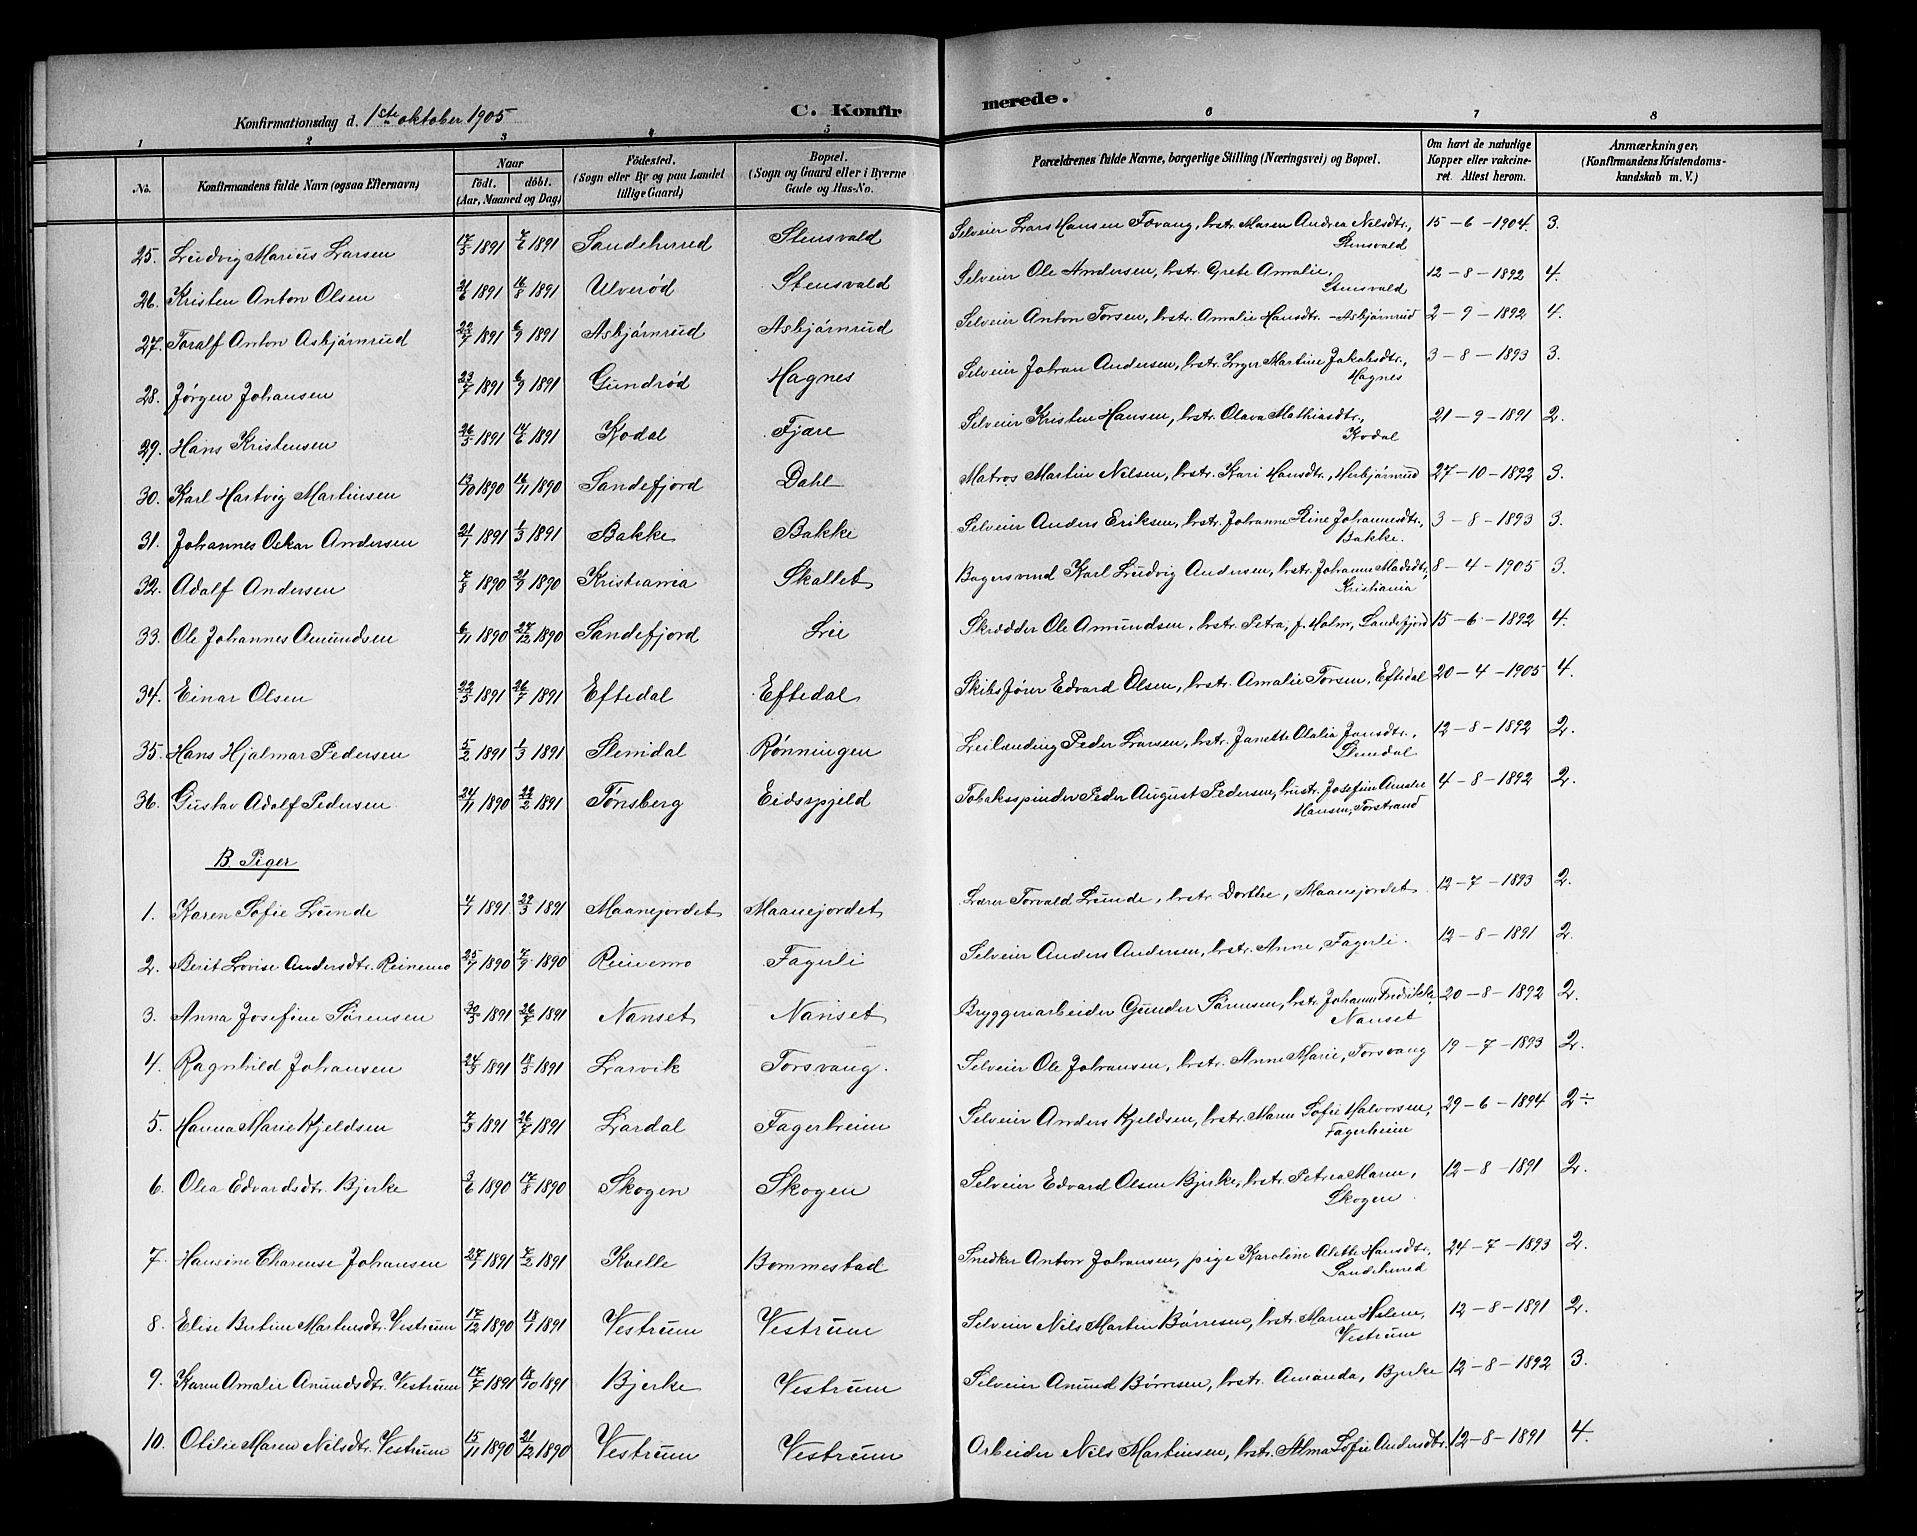 Konfirmationsdag d. 1ste oktober 1905
C. Konfir
merede.
1 2 3 4 5 6 7 8
No. Konfirmandens fulde Navn (ogsaa Efternavn) Naar født. døbt. (Aar, Maaned og Dag) Fødested. (Sogn eller By og paa Landet tillige Gaard) Bopæl. (Sogn og Gaard eller i Byerne Gade og Hus-No. Forældrenes fulde Navne, borgerlige Stilling (Næringsvei) og Bopæl. Om havt de naturlige Kopper eller vakcineret. Attest herom. Anmærkninger. (Konfirmandens Kristendomskundskab m. V.)
25. Ludvig Marius Larsen 17/3 1891 7/6 1891 Sandeherred Stensvald Selveier Lars Hansen Tovang, hstr. Maren Andrea Nilsdtr., 15-6-1904. 3.
Stensvald
26. Kristen Anton Olsen 21/6 1891 16/8 1891 Ulverød Stensvald Selveier Ole Andersen, hstr. Grete Amalie, 12-8-1892 4.
Stensvald
27. Toralf Anton Asbjørnrud 22/7 1891 6/9 1891 Asbjørnrud Asbjørnrud Selveier Anton Torsen, hstr. Amalie Hansdtr. - Asbjørnrud 2-9-1892 4.
28. Jørgen Johansen 23/7 1891 6/9 1891 Gundrød Hagnes Selveier Johan Andersen, hstr. Inger Martine Jakobsdtr., 3-8-1893 3.
Hagnes
29. Hans Kristensen 26/3 1891 14/6 1891 Kodal Fjære Selveier Kristen Hansen, hstr. Olava Mathiasdtr., 21-9-1891 2.
Kodal
30. Karl Hartvig Martinsen 13/10 1890 16/11 1890 Sandefjord Dahl Matros Martin Nilsen, hstr. Kari Hansdtr., Herbjørnrud 27-10-1892 3.
31. Johannes Oskar Andersen 21/1 1891 1/3 1891 Bakke Bakke Selveier Anders Eriksen, hstr. Johanne Stine Johannesdtr., 3-8-1893 3.
Bakke.
32. Adolf Andersen 7/8 1890 21/9 1890 Kristiania Skallet Bagersvend Karl Ludvig Andersen, hstr. Johanne Madsdtr., 8-4-1905 3.
Kristiania
33. Ole Johannes Amundsen 6/11 1890 27/12 1890 Sandefjord Lie Skrædder Ole Amundsen, hstr. Petra, f. Holm, Sandefjord 15-6-1892 4.
34. Einar Olsen 22/3 1891 26/7 1891 Eftedal Eftedal Skibsfører Edvard Olsen, hstr. Amalie Torsen, Eftedal 20-4-1905 4.
35. Hans Hjalmar Pedersen 5/2 1891 1/3 1891 Slemdal Rønningen Leilending Peder Larsen, hstr. Janette Olalia Jansdtr., 12-8-1892 2.
Slemdal
36. Gustav Adolf Pedersen 24/11 1890 22/2 1891 Tønsberg Eidsfjeld Tobaksspinder Peder August Pedersen, hustr. Josefine Amalie 4-8-1892 2.
Hansen, Torstrand
B. Piger
1. Karen Sofie Lunde 4/1 1891 22/3 1891 Maanejordet Maanejordet Lærer Torvald Lunde, hstr. Dorthe, Maanejordet 12-7-1893 2.
2. Berit Lovise Andersdtr. Reinemo 25/7 1890 7/9 1890 Reinemo Fagerli Selveier Anders Andersen, hstr. Anne, Fagerli. 12-8-1891 2.
3. Anna Josefine Sørensen 30/3 1891 26/7 1891 Nanset Nanset Bryggeriarbeider Gunder Sørensen, hstr. Johanne Fredrikke, 20-8-1892 2.
Nanset
4. Ragnhild Johansen 24/3 1891 18/5 1891 Larvik Torsvang. Selveier Ole Johansen, hstr. Anne Marie, Torsvang 19-7-1893 2.
5. Hanna Marie Kjeldsen 7/3 1891 26/7 1891 Lardal Fagerheim Selveier Anders Kjeldsen, hstr. Maren Sofie Halvorsen, 29-6-1894 2÷
Fagerheim
6. Olea Edvardsdtr. Bjerke 3/6 1890 17/8 1890 Skogen Skogen Selveier Edvard Olsen Bjerke, hstr. Petrea Maren, 12-8-1891 2.
Skogen
7. Hansine Tharense Johansen 27/1 1891 7/2 1891 Kvelle Bommestad Snedker Anton Johansen, pige Karoline Alette Hansdtr., 24-7-1893 2.
Sandeherred
8. Elise Bertine Martinsdtr. Vestrum 17/12 1890 18/1 1891 Vestrum Vestrum Selveier Nils Martin Børresen, hstr. Maren Helene, 12-8-1891 2.
Vestrum
9. Karen Amalie Amundsdtr. Vestrum 17/7 1891 18/10 1891 Bjerke Vestrum Selveier Amund Børresen, hstr. Amanda, Bjerke 12-8-1892 3.
10. Otilie Maren Nilsdtr. Vestrum 15/11 1890 21/12 1890 Vestrum Vestrum Arbeider Nils Martinsen, hstr. Alma Sofie Andersdtr. 12-8-1891 4.